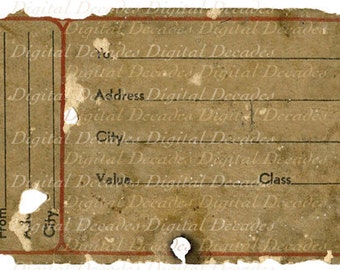 To
Address
City
Value Class
From
City
Digital Decades
Digital Decades
Digital Decades
Digital Decades
Digital Decades
Digital Decades